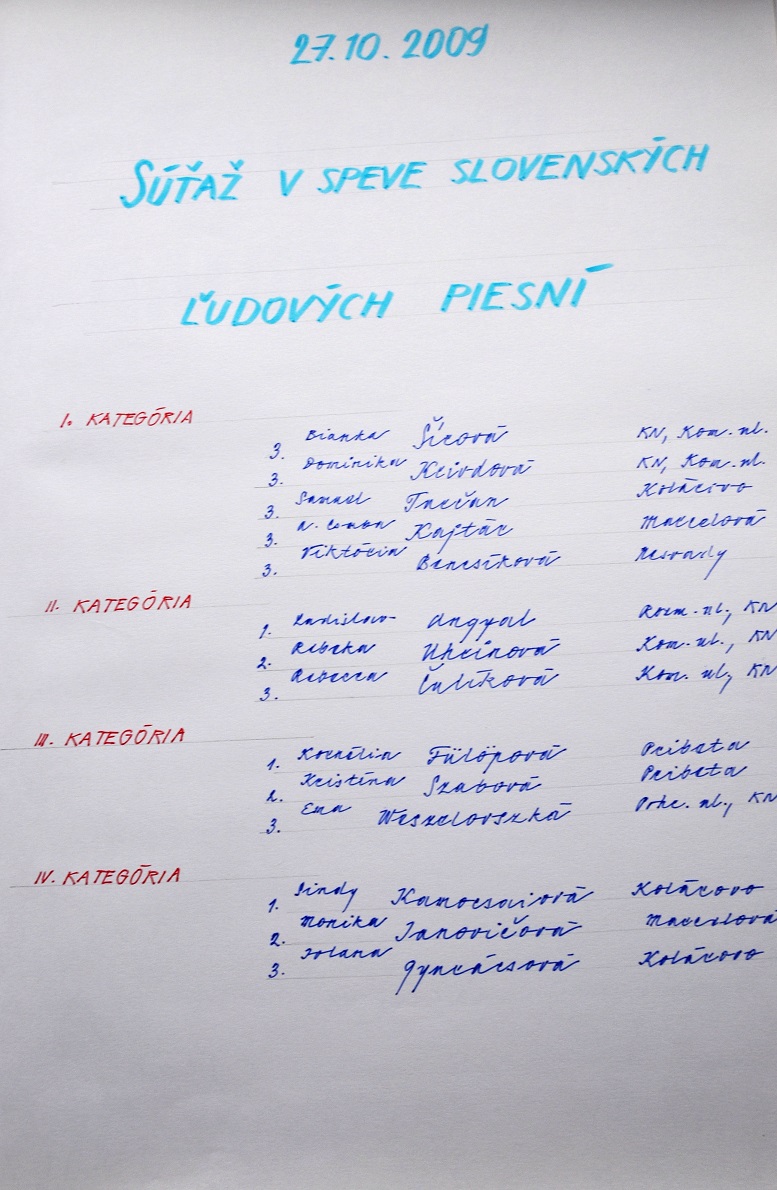 27.10.2009
SÚŤAŽ V SPEVE SLOVENSKÝCH
ĽUDOVÝCH PIESNÍ
I. KATEGÓRIA
3. Bianka Šírová KN, Kom. ul.
3. Dominika KN, Kom. ul.
3. Samuel Kolárovo
3. Kajtár Marcelová
3. Viktória Bencsíková Nesvady
II. KATEGÓRIA
1. Ladislav Angyal Rozm. ul., KN
2. Rebeka Uhrinová Kom. ul., KN
3. Rebecca Čulíková Kom. ul., KN
III. KATEGÓRIA
1. Kornélia Fülöpová Pribeta
2. Kristína Szabová Pribeta
3. Ema Weszelovszká Pohr. ul., KN
IV. KATEGÓRIA
1. Sindy Kamocsaiová Kolárovo
2. Monika Janovičová Marcelová
3. Jolana Gyurácsová Kolárovo